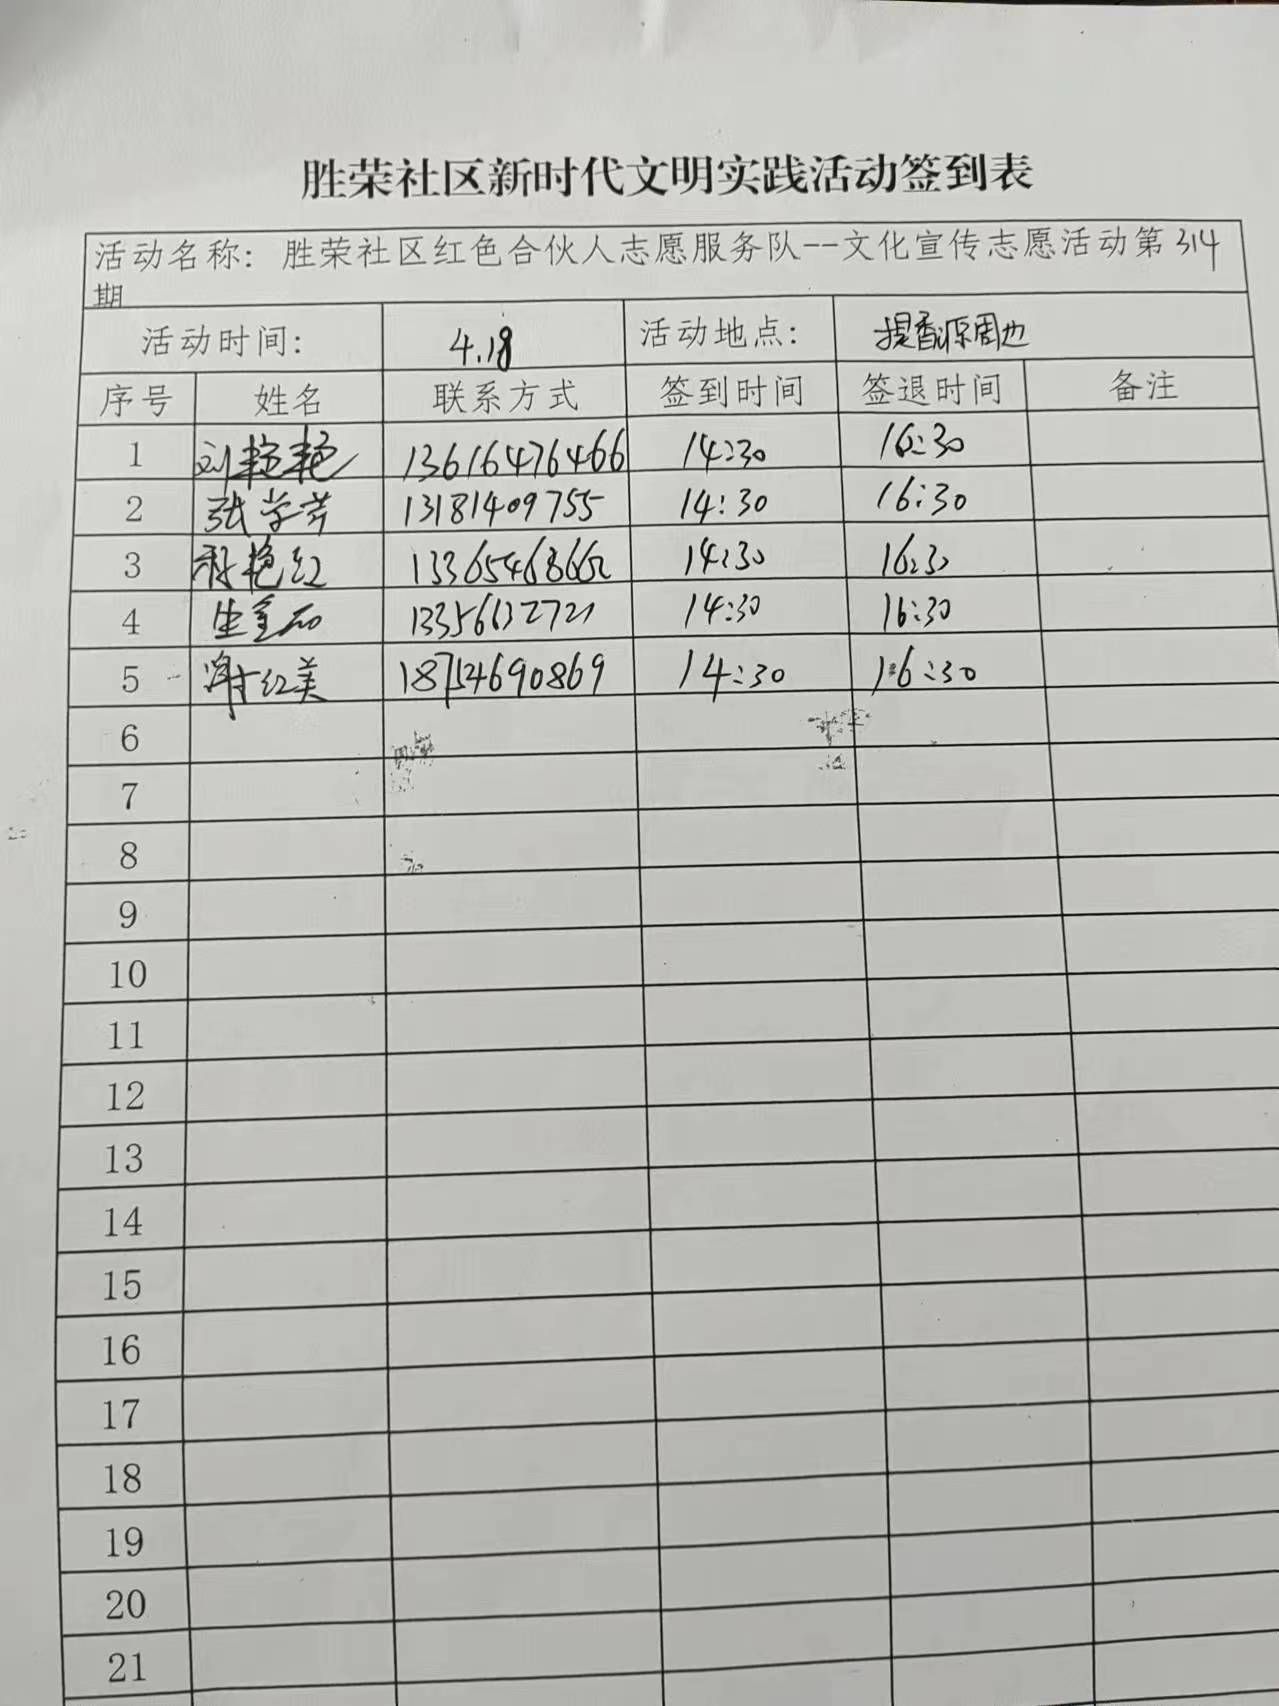 胜荣社区新时代文明实践活动签到表
活动名称：胜荣社区红色合伙人志愿服务队--文化宣传志愿活动第314
期
活动时间： 4.18 活动地点： 提香源周边
序号 姓名 联系方式 签到时间 签退时间 备注
1 刘艳艳 13616476466 14:30 16:30
2 张学芳 13181409755 14:30 16:30
3 艳红 14:30 16:30
4 生金 14:30 16:30
5 谢红美 18754690869 14:30 16:30
6
7
8
9
10
11
12
13
14
15
16
17
18
19
20
21